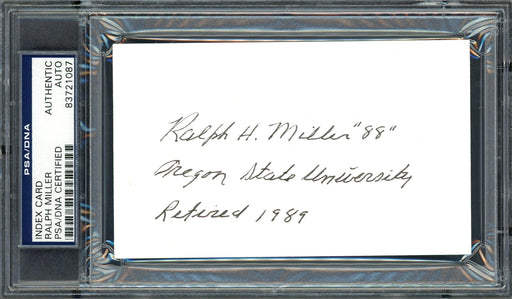 PSA/DNA
INDEX CARD
RALPH MILLER
PSA/DNA CERTIFIED
AUTHENTIC
AUTO
83721087
Ralph H. Miller "88"
Oregon State University
Retired 1989